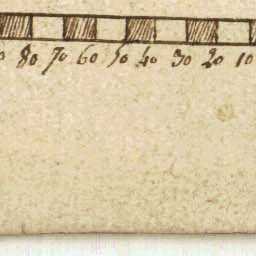 0 80 70 60 50 40 30 20 10